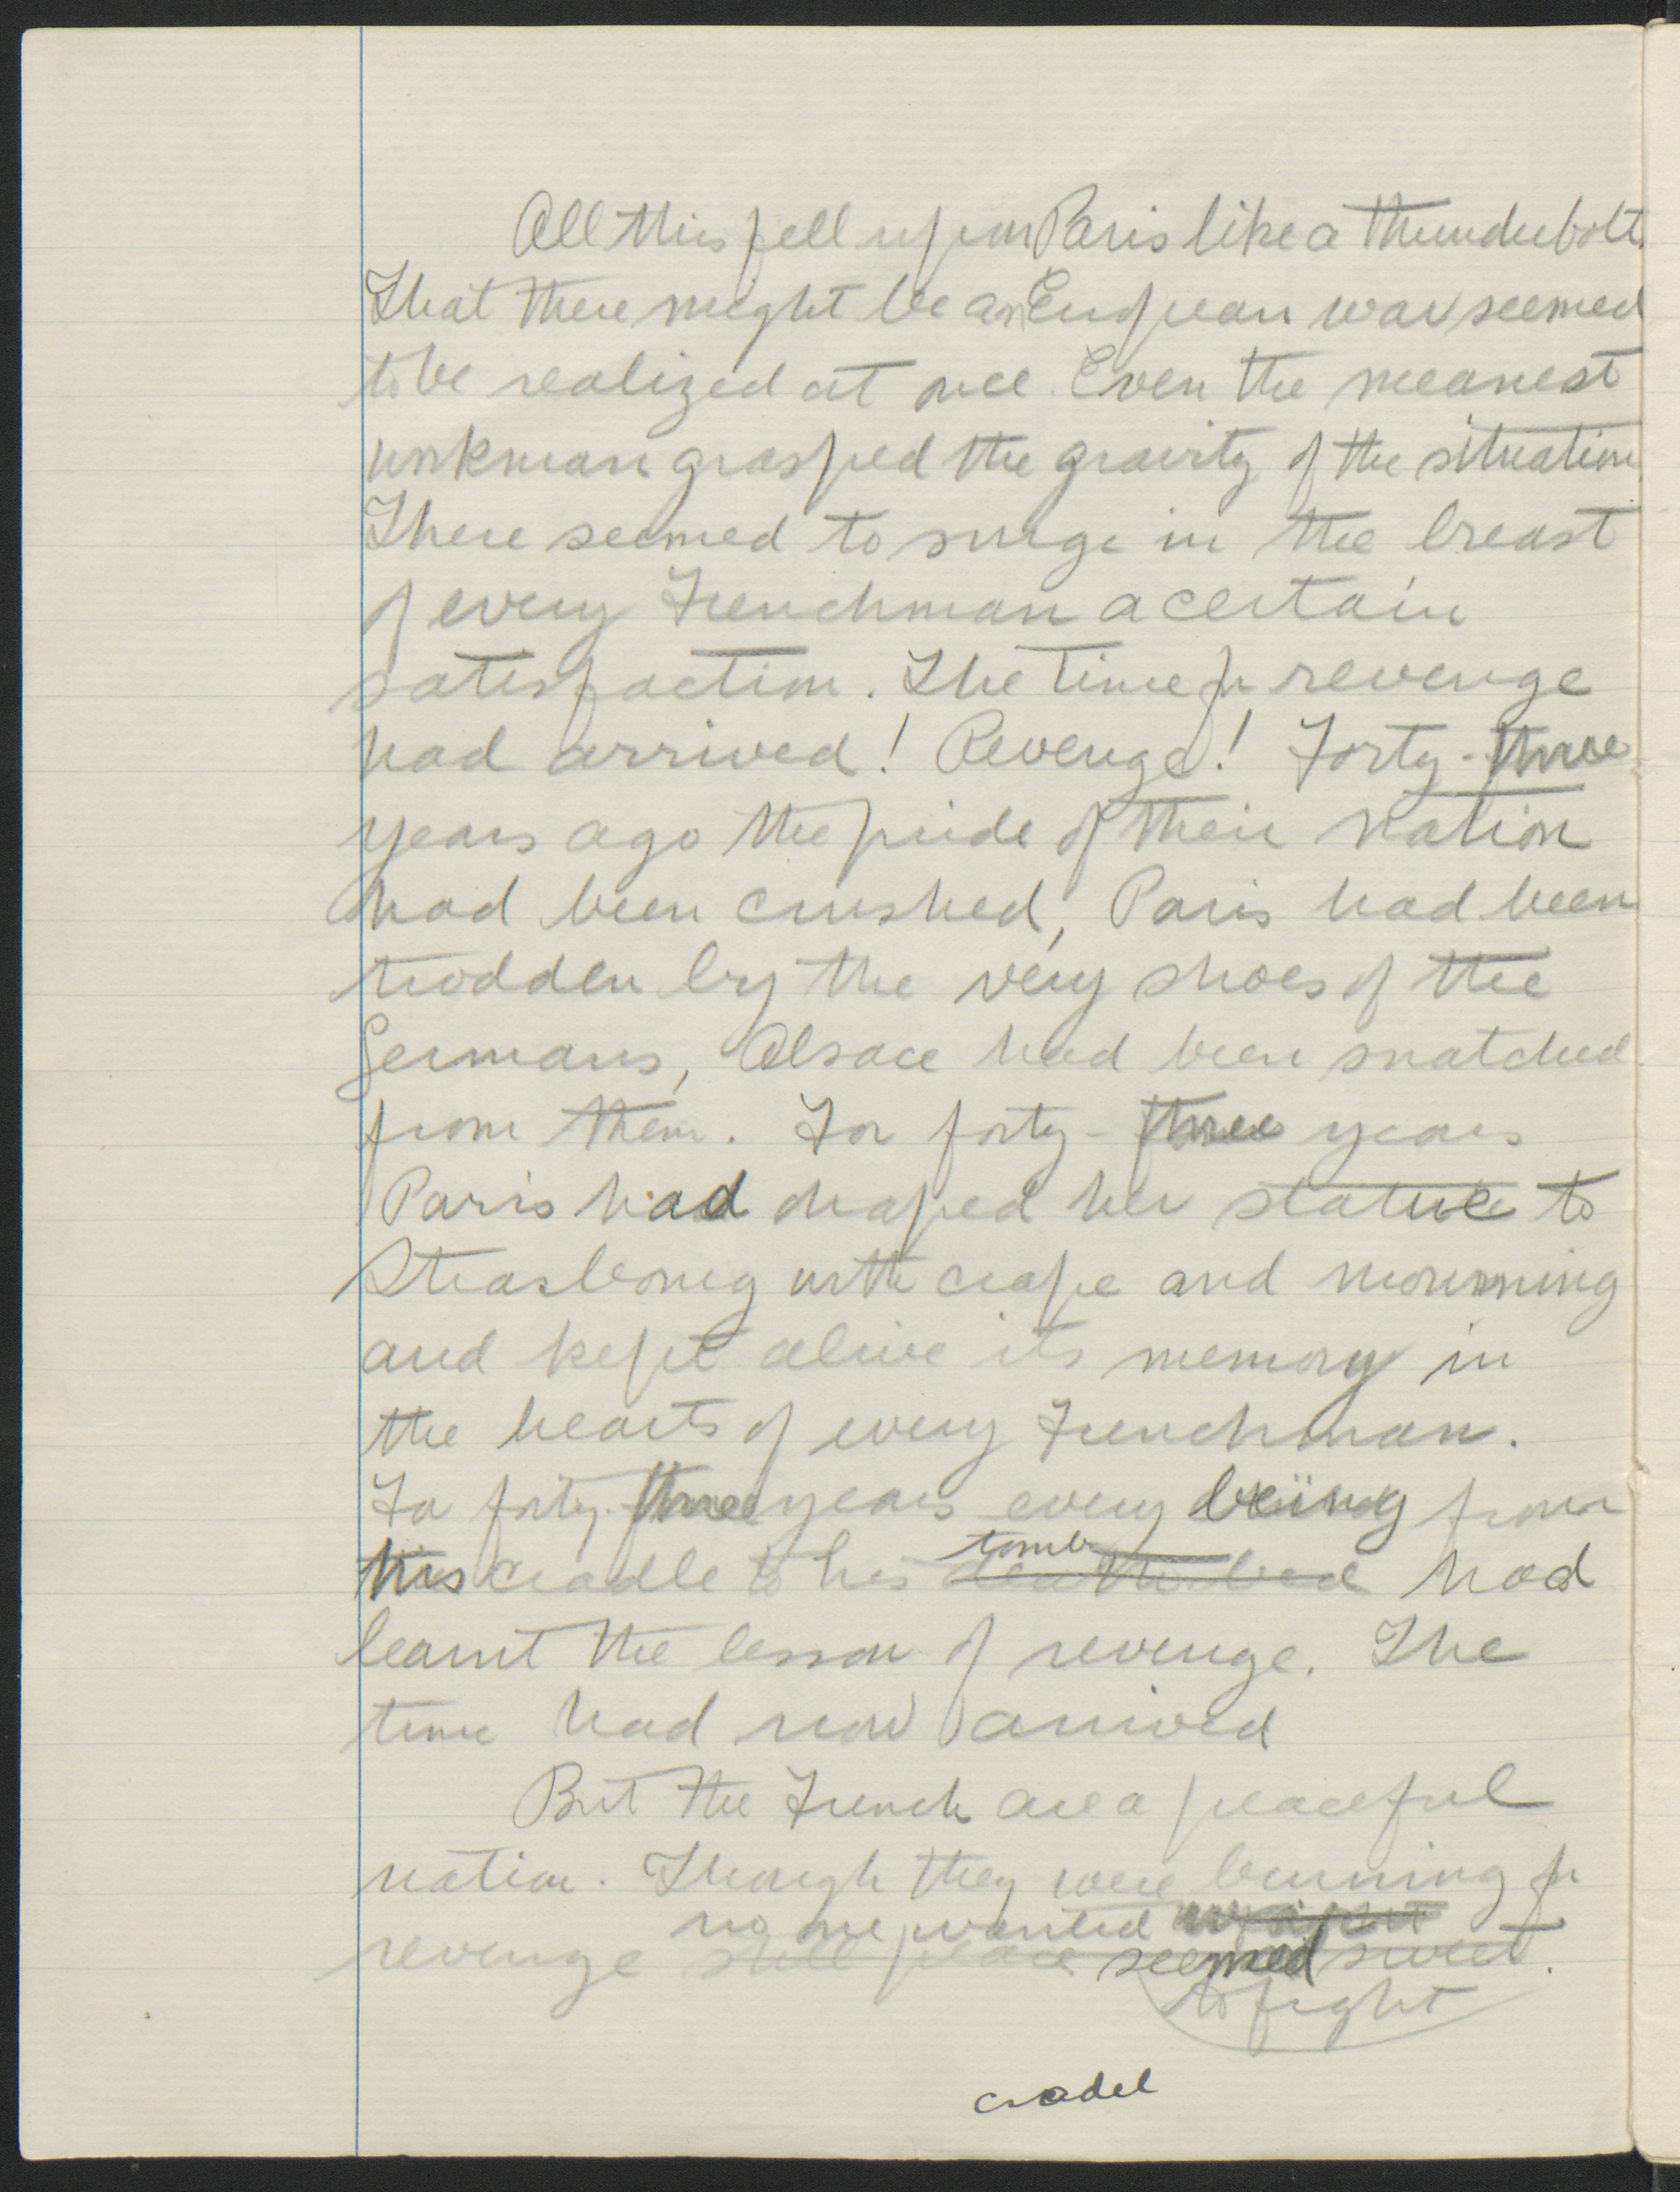 All this fell upon Paris like a thunderbolt.
That there might be an European war seemed
to be realized at once. Even the meanest
workman grasped the gravity of the situation
There seemed to surge in the breast
of every Frenchman a certain
satisfaction. The time for revenge
had arrived! Revenge! Forty-three
years ago the pride of their nation
had been crushed, Paris had been
trodden by the very shoes of the
Germans, Alsace had been snatched
from them. For forty-three years
Paris had draped her statue to
Strasbourg with crape and mourning
and kept alive its memory in
the hearts of every Frenchman.
For forty-three years every being from
tomb
his cradle to his death bed had
learnt the lesson of revenge. The
time had now arrived
But the French are a peaceful
nation. Though they were burning for
no one wanted
revenge still peace seemed sweet.
to fight
cradel